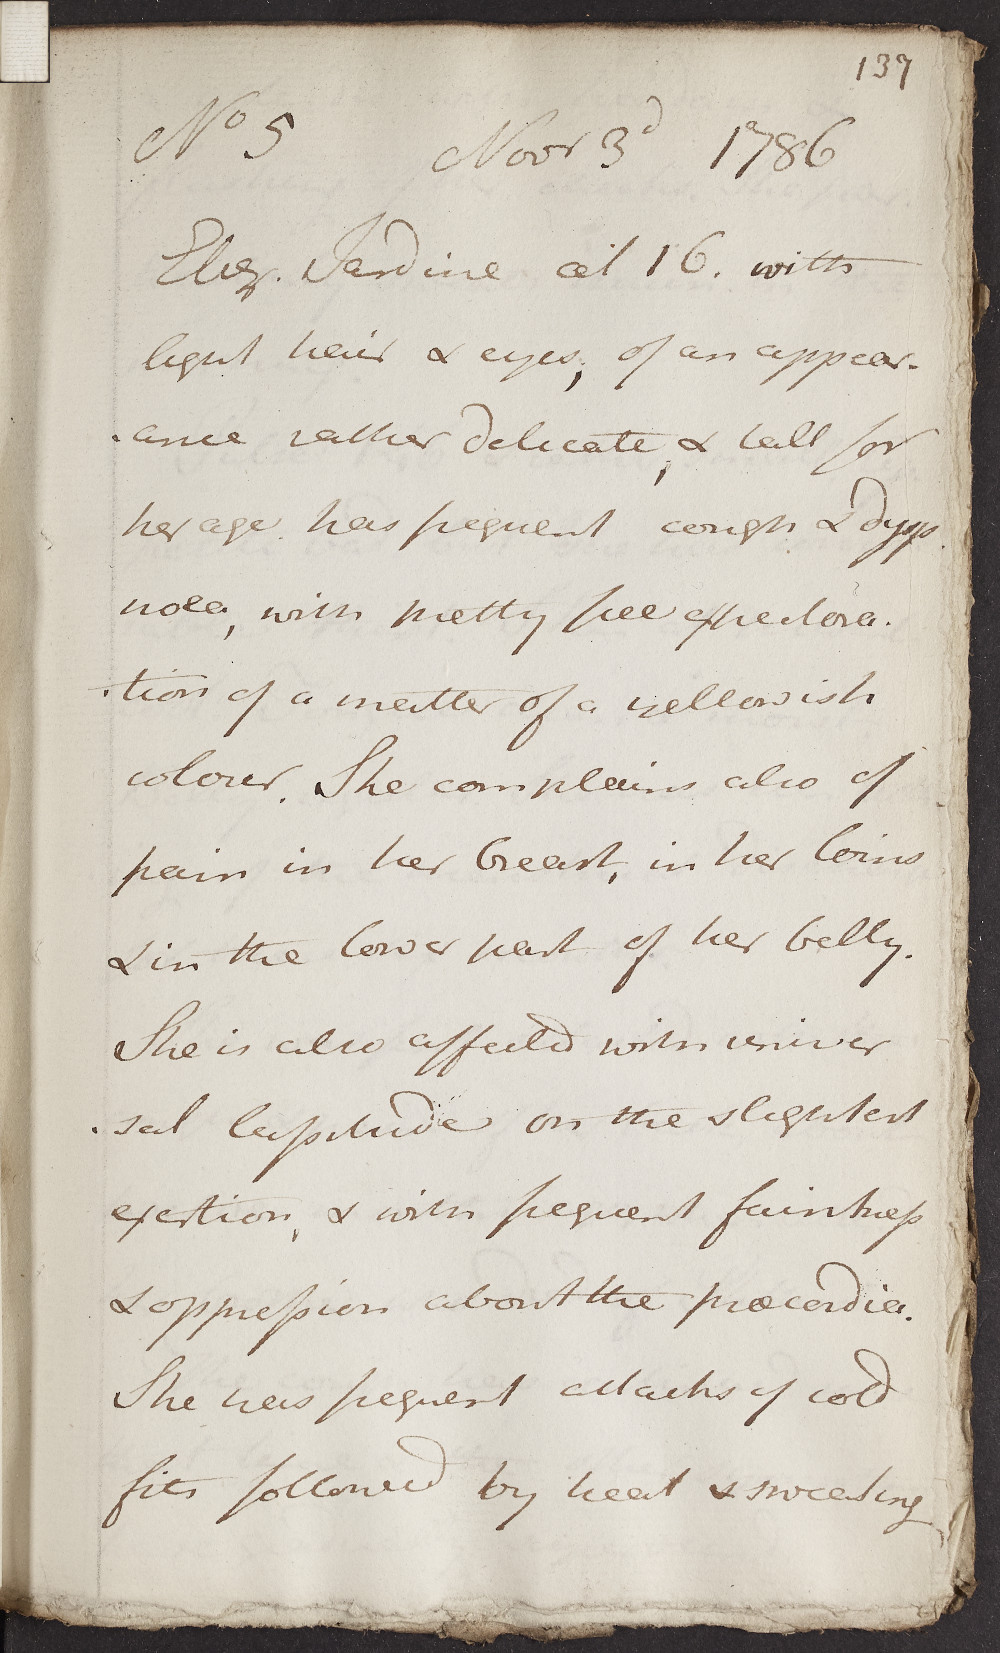 137
No 5 Novr 3d 1786
Eliz. Jardine æt 16. with
light hair & eyes, of an appear-
-ance rather delicate, & tall for
her age. has frequent cough & dysp
noea, with pretty free expectora-
-tion of a matter of a yellowish
colour. She complains also of
pain in her breast, in her loins
& in the lower part of her belly.
She is also affected with univer
-sal lassitude on the slightest
exertion, & with frequent faintness
& oppression about the præcordia.
She has frequent attacks of cold
fits followed by heat & sweating